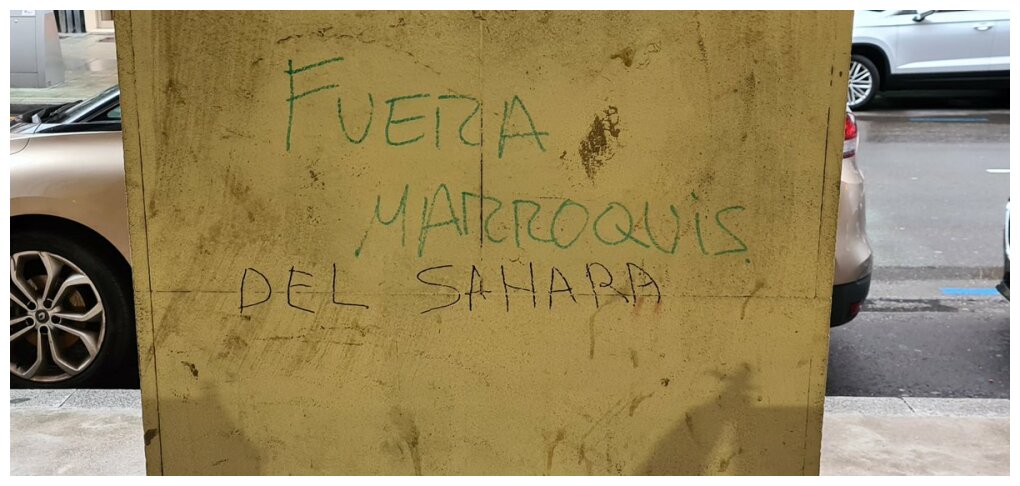 FUERA
MARROQUIS
DEL SAHARA